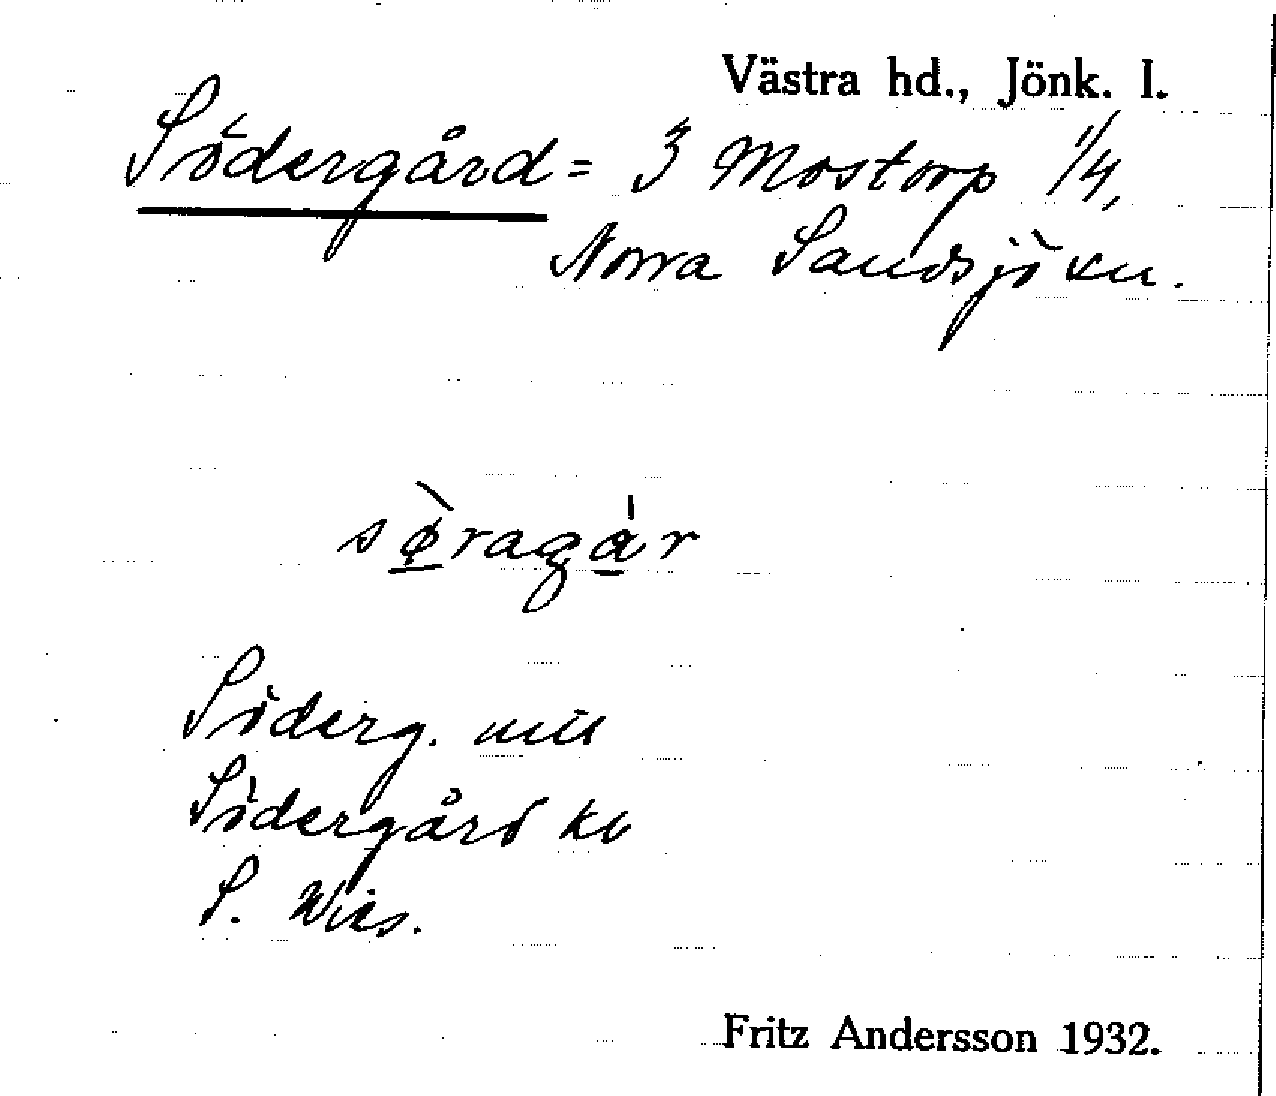 Västra hd., Jönk. l.
Södergård = 3 Mostorp 1/4,
Norra Sandsjö sn.
sø̀ragár
Söderg. mtl
Södergård kb
S. Wies.
Fritz Andersson 1932.